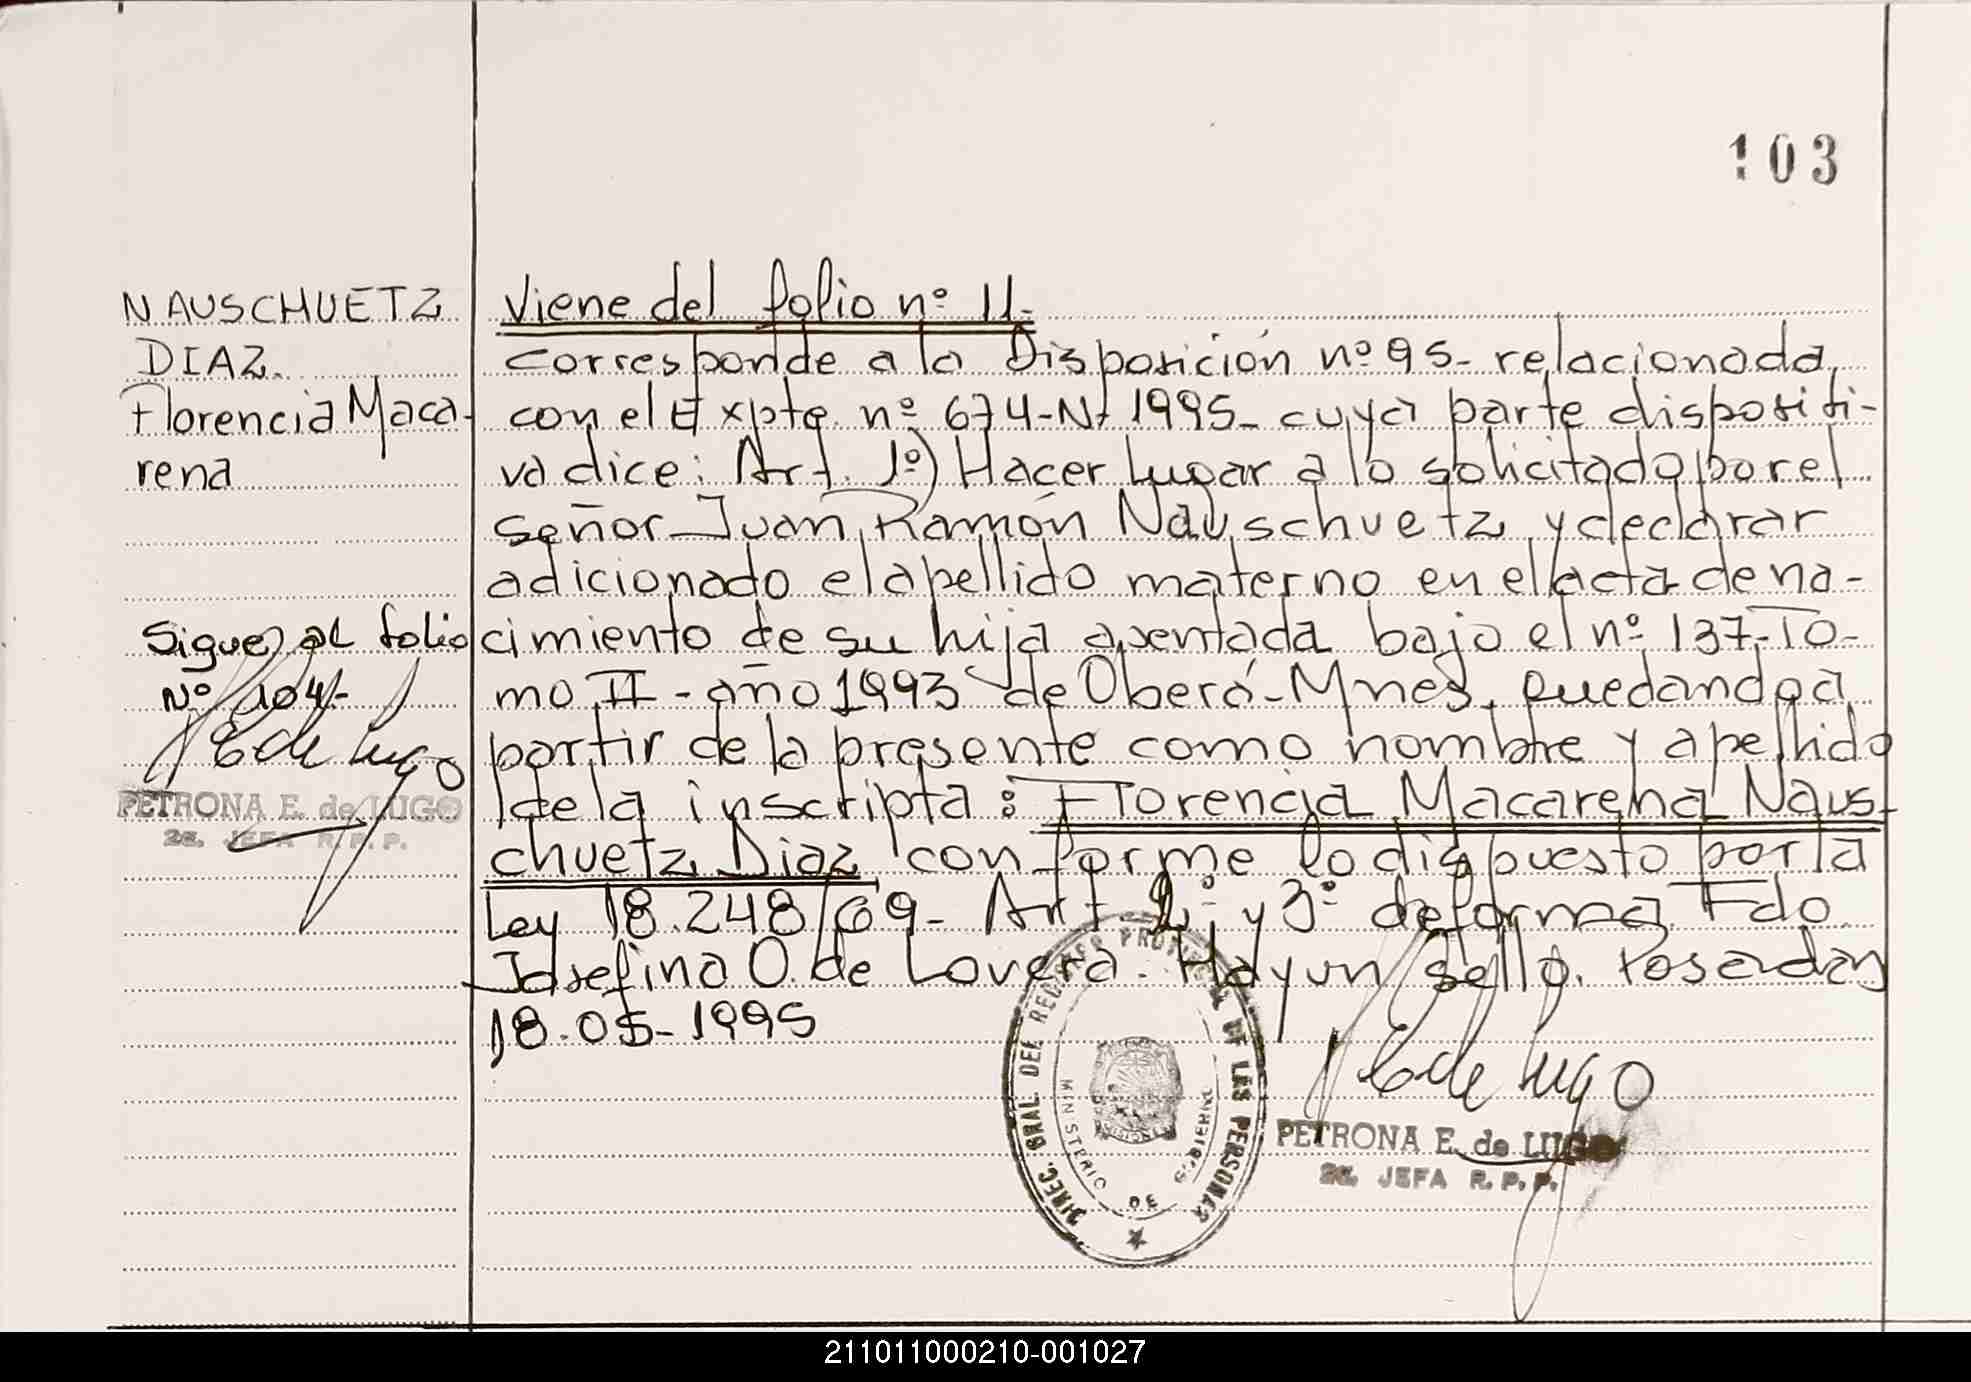 103
NAUSCHUETZ
DIAZ.
Florencia Maca-
rena
Sigue al folio
Nº 104-
E de Lugo
PETRONA E. de LUGO
2a. JEFA R. P. P.
Viene del folio nº 11-
corresponde a la Disposición nº 95- relacionada
con el Expte. nº 674-N- 1995- cuya parte dispositi-
va dice: Art. 1º) Hacer lugar a lo solicitado por el
señor Juan Ramón Nauschuetz y declarar
adicionado el apellido materno en el acta de na-
cimiento de su hija asentada bajo el nº 137-To-
mo II - año 1993 de Oberá-Mnes, quedando a
partir de la presente como nombre y apellido
de la inscripta: Florencia Macarena Naus-
chuetz Diaz conforme lo dispuesto por la
Ley 18.248/69- Art. 2º y 3º de forma. Fdo.
Josefina O. de Lovera. Hay un sello. Posadas
18-05-1995
DIREC. GRAL. DEL REGISTRO PROVINCIAL DE LAS PERSONAS
MINISTERIO DE GOBIERNO
MISIONES
E de Lugo
PETRONA E. de LUGO
2a. JEFA R. P. P.
211011000210-001027